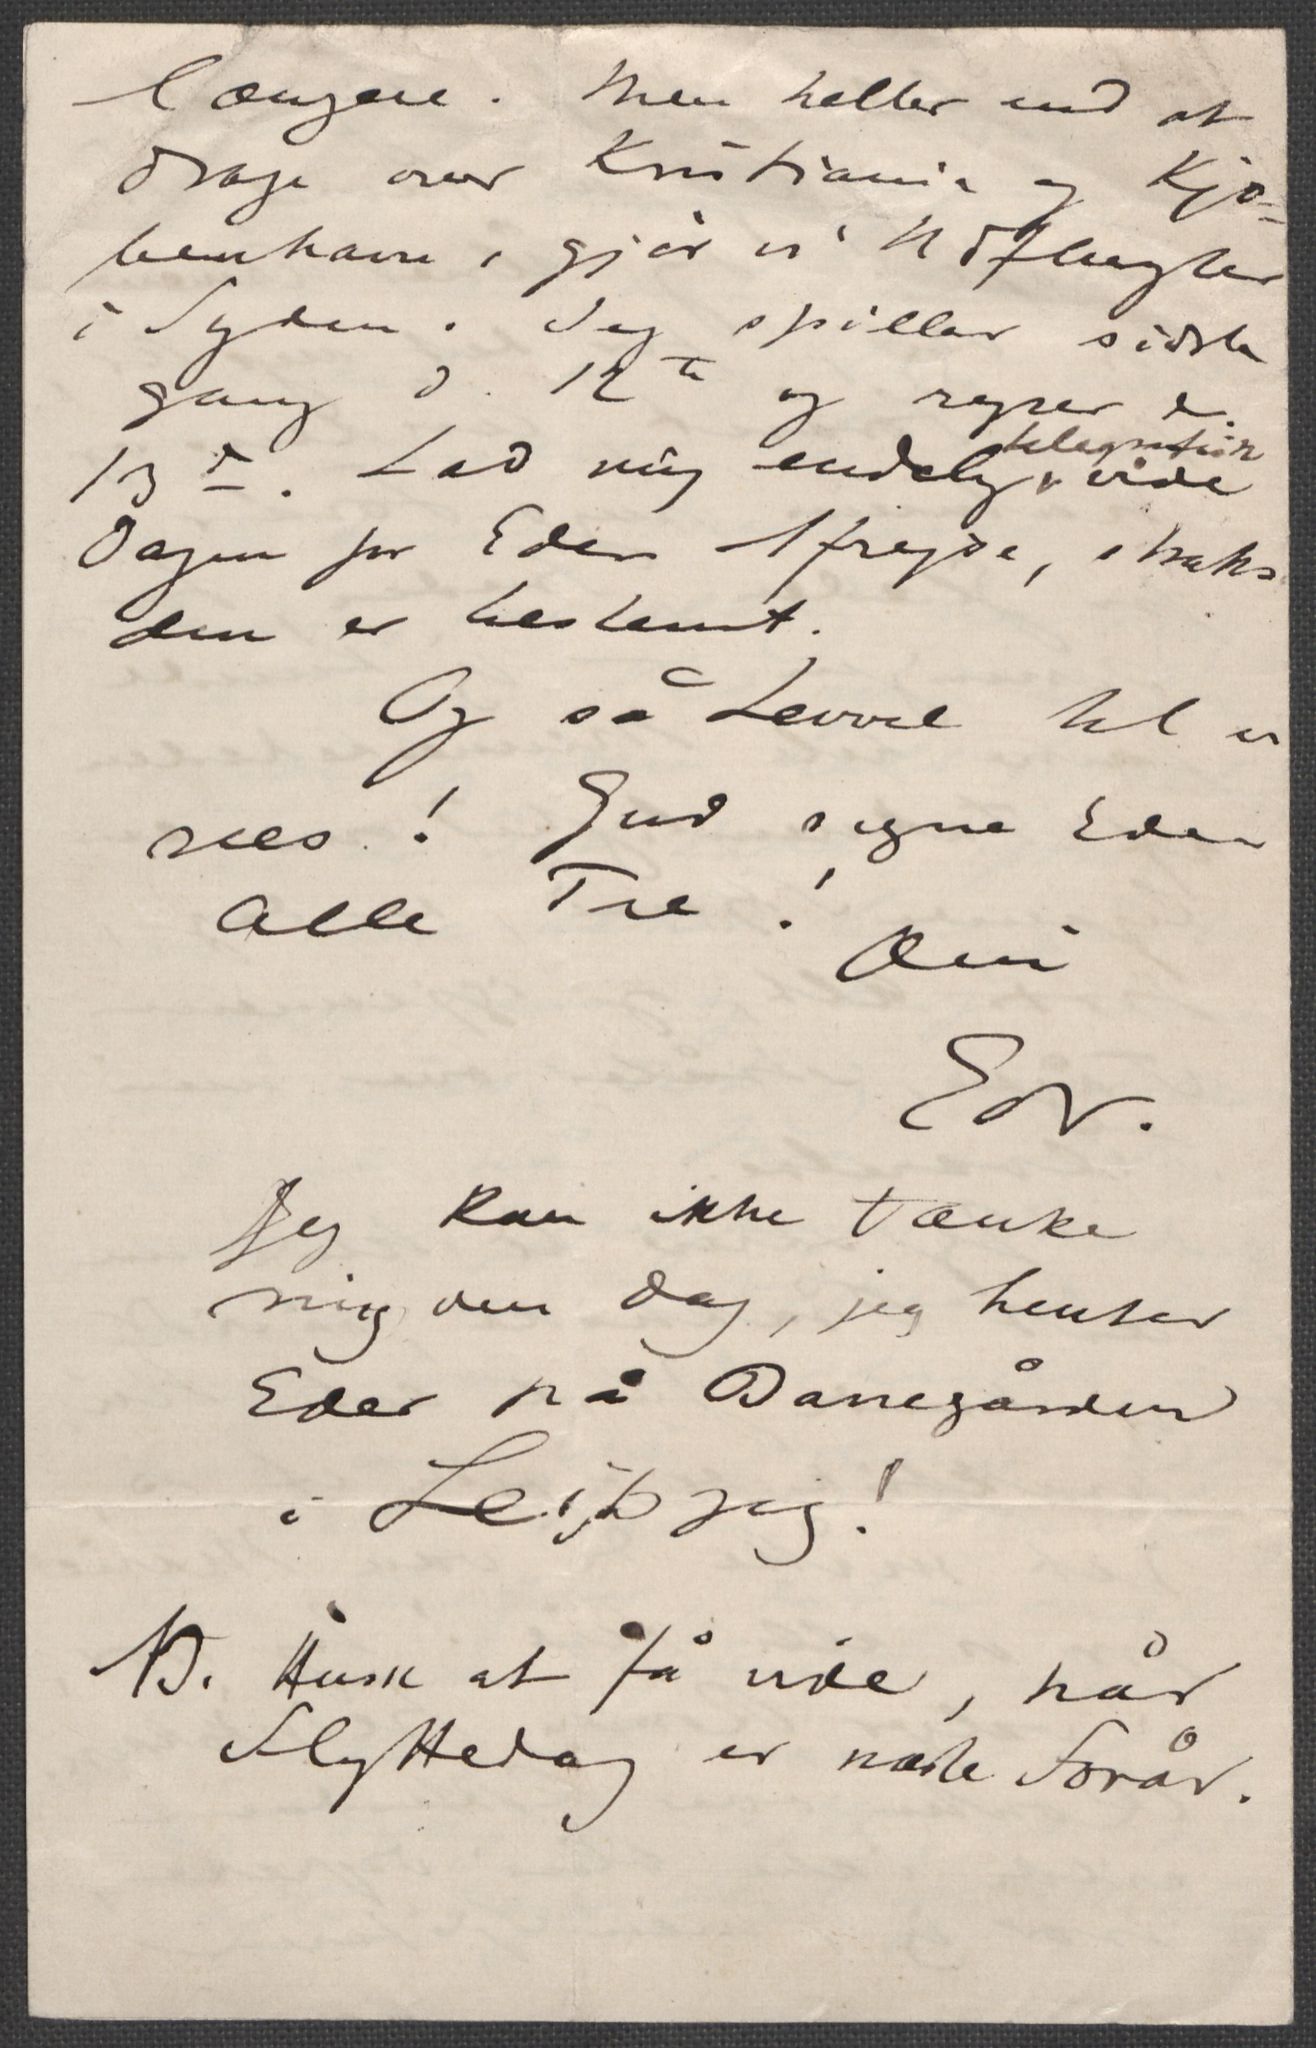 længere. Men heller end at
drage over Kristiania og Kjø-
benhavn, gjør vi Udflugter
i Syden. Jeg spiller sidste
gang d. 12te og rejser d.
13de. Lad mig endelig telegrafisk vide
Dagen for Eders Afrejse, straks
den er bestemt.
Og så Levvel til vi
sees! Gud signe Eder
alle Tre! Din
Edv.
Jeg kan ikke tænke
mig den Dag, jeg henter
Eder på Banegården
i Leipzig!
NB. Husk at få vide, når
Flyttedag er næste Forår.